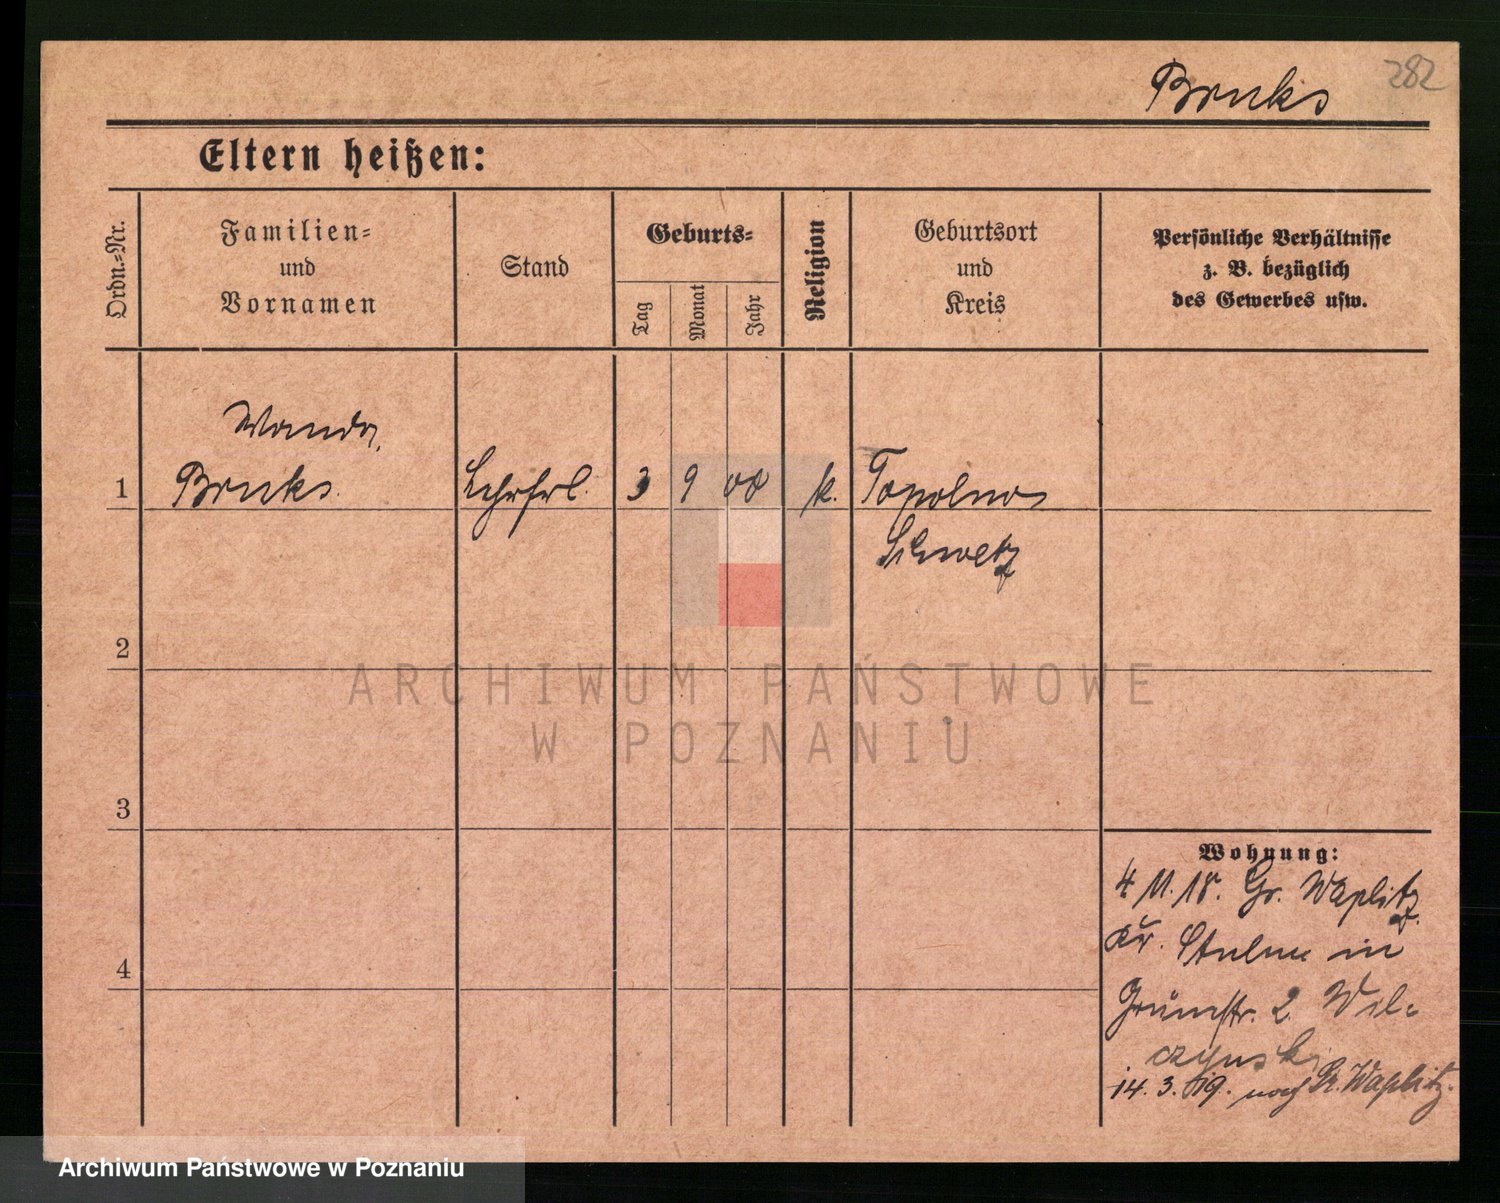 282
Bruks
Eltern heißen:
Ordn.-Nr.
Familien-
und
Vornamen
Stand
Geburts-
Tag
Monat
Jahr
Religion
Geburtsort
und
Kreis
Persönliche Verhältnisse
z. B. bezüglich
des Gewerbes usw.
Wanda
1 Bruks. Lehrfrl. 3 9 00 k. Topolno
Schwetz
2
3
4
Wohnung:
4. 11. 18. Gr. Waplitz
Kr. Stuhm in
Grünstr. 2 Wil-
czynski
14. 3. 19. nach Gr. Waplitz.
ARCHIWUM PAŃSTWOWE
W POZNANIU
Archiwum Państwowe w Poznaniu